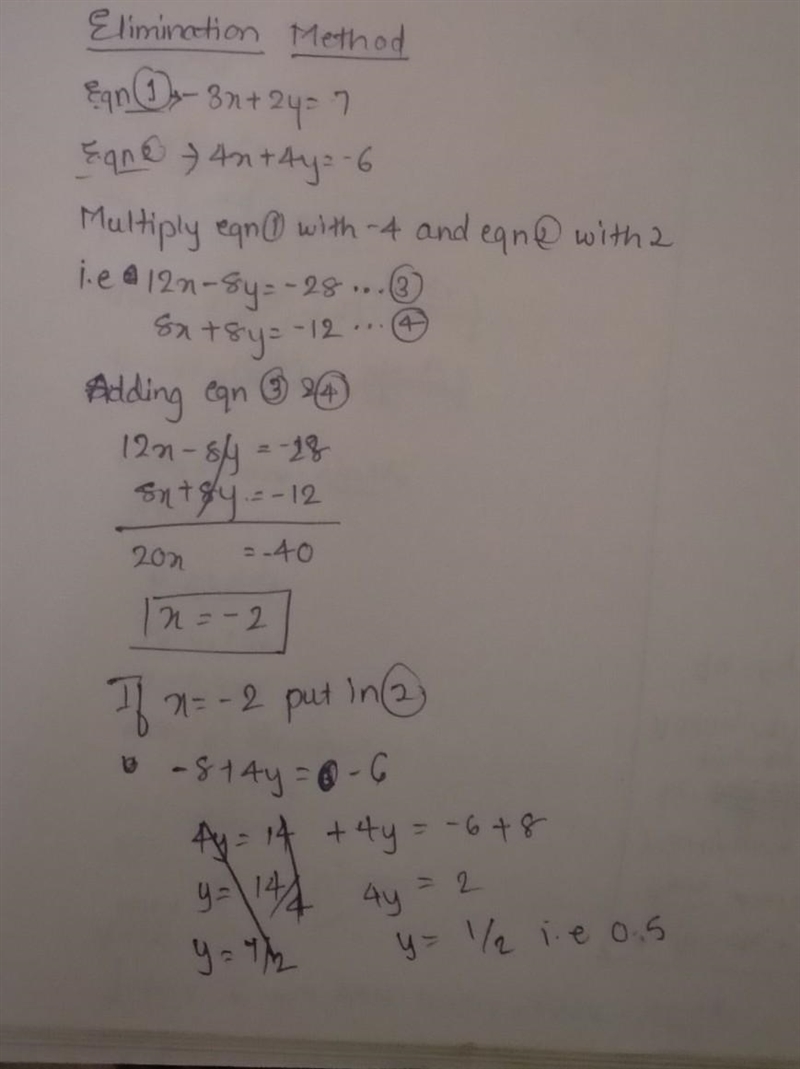 Elimination Method
Eqn ① → -3x+2y= 7
Eqn ② → 4x+4y=-6
Multiply eqn① with -4 and eqn② with 2
i.e 12x-8y= -28 ...③
8x+8y= -12 ...④
Adding eqn ③ & ④
12x-8y = -28
8x+8y = -12
20x = -40
x = -2
If x= -2 put in ②
-8+4y = -6
4y = 14 +4y = -6+8
y= 14/4 4y = 2
y= 7/2 y= 1/2 i.e 0.5